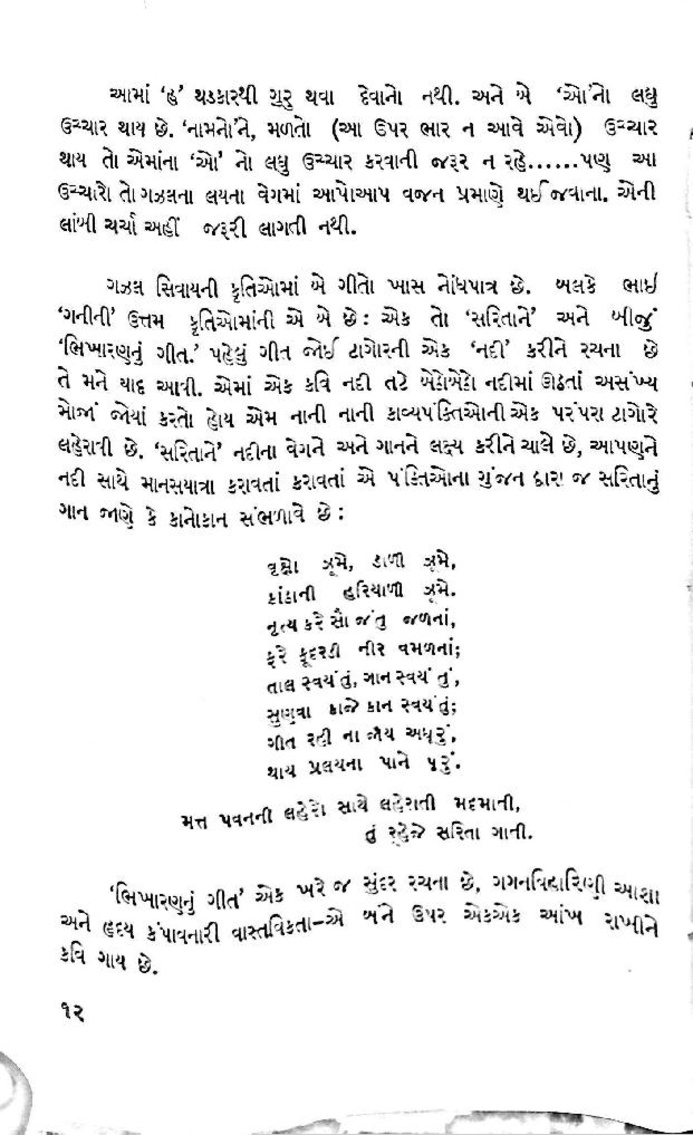 આમાં ‘હ’ થડકારથી ગુરુ થવા દેવાનો નથી. અને બે ‘ઓ’નો લઘુ
ઉચ્ચાર થાય છે. ‘નામનો’ને, મળતો (આ ઉપર ભાર ન આવે એવો) ઉચ્ચાર
થાય તો એમાંના ‘ઓ’ નો લઘુ ઉચ્ચાર કરવાની જરૂર ન રહે......પણ આ
ઉચ્ચારો તો ગઝલના લયના વેગમાં આપોઆપ વજન પ્રમાણે થઈ જવાના. એની
લાંબી ચર્ચા અહીં જરૂરી લાગતી નથી.
ગઝલ સિવાયની કૃતિઓમાં બે ગીતો ખાસ નોંધપાત્ર છે. બલકે ભાઈ
‘ગનીની’ ઉત્તમ કૃતિઓમાંની એ બે છે: એક તો ‘સરિતાને’ અને બીજું
‘ભિખારણનું ગીત.’ પહેલું ગીત જોઈ ટાગોરની એક ‘નદી’ કરીને રચના છે
તે મને યાદ આવી. એમાં એક કવિ નદી તટે બેઠોબેઠો નદીમાં ઊઠતાં અસંખ્ય
મોજાં જોયાં કરતો હોય એમ નાની નાની કાવ્યપંક્તિઓની એક પરંપરા ટાગોરે
લહેરાવી છે. ‘સરિતાને’ નદીના વેગને અને ગાનને લક્ષ્ય કરીને ચાલે છે, આપણને
નદી સાથે માનસયાત્રા કરાવતાં કરાવતાં એ પંક્તિઓના ગુંજન દ્વારા જ સરિતાનું
ગાન જાણે કે કાનોકાન સંભળાવે છે :
વૃક્ષો ઝૂમે, ડાળી ઝૂમે,
કાંઠાની હરિયાળી ઝૂમે.
નૃત્ય કરે સૌ જંતુ જળનાં,
ફરે ફૂદરડી નીર વમળનાં;
તાલ સ્વયં તું, ગાન સ્વયં તું,
સુણવા કાજે કાન સ્વયં તું;
ગીત રહી ના જાય અધૂરું,
થાય પ્રલયના પાને પૂરું.
મત્ત પવનની લહેરો સાથે લહેરાતી મદમાતી,
તું રહેજે સરિતા ગાતી.
‘ભિખારણનું ગીત’ એક ખરે જ સુંદર રચના છે, ગગનવિહારિણી આશા
અને હૃદય કંપાવનારી વાસ્તવિકતા–એ બંને ઉપર એકએક આંખ રાખીને
કવિ ગાય છે.
૧૨